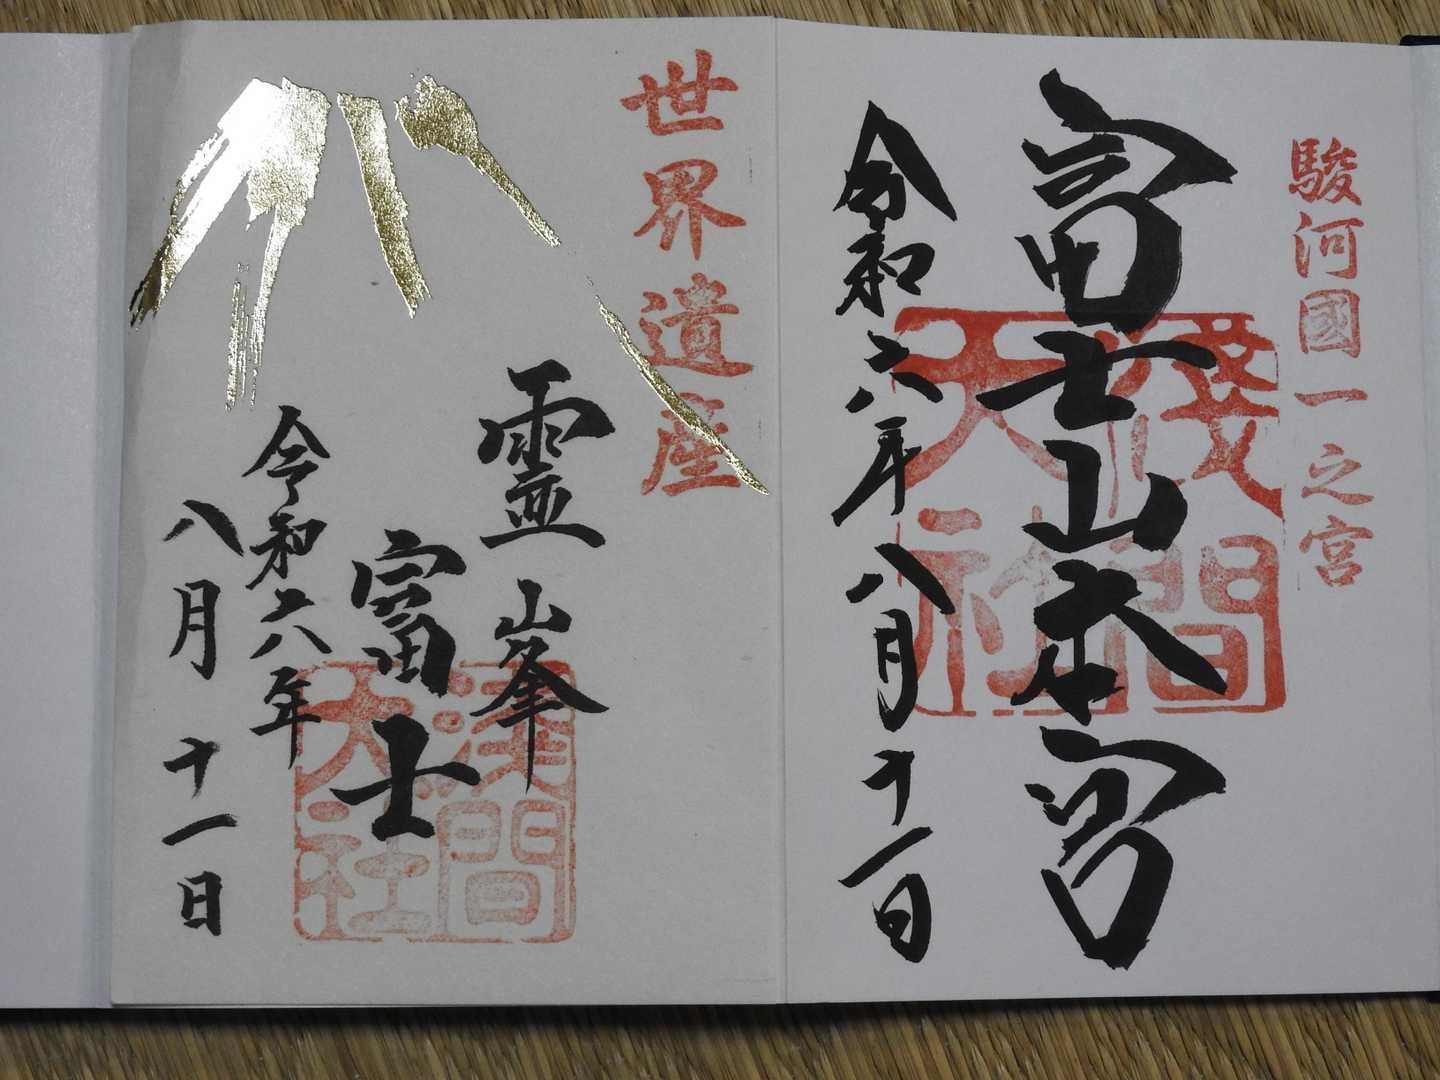 駿河國一之宮
富士山本宮
淺間大社
令和六年八月十一日
世界遺産
霊峯
富士
淺間大社
令和六年
八月十一日